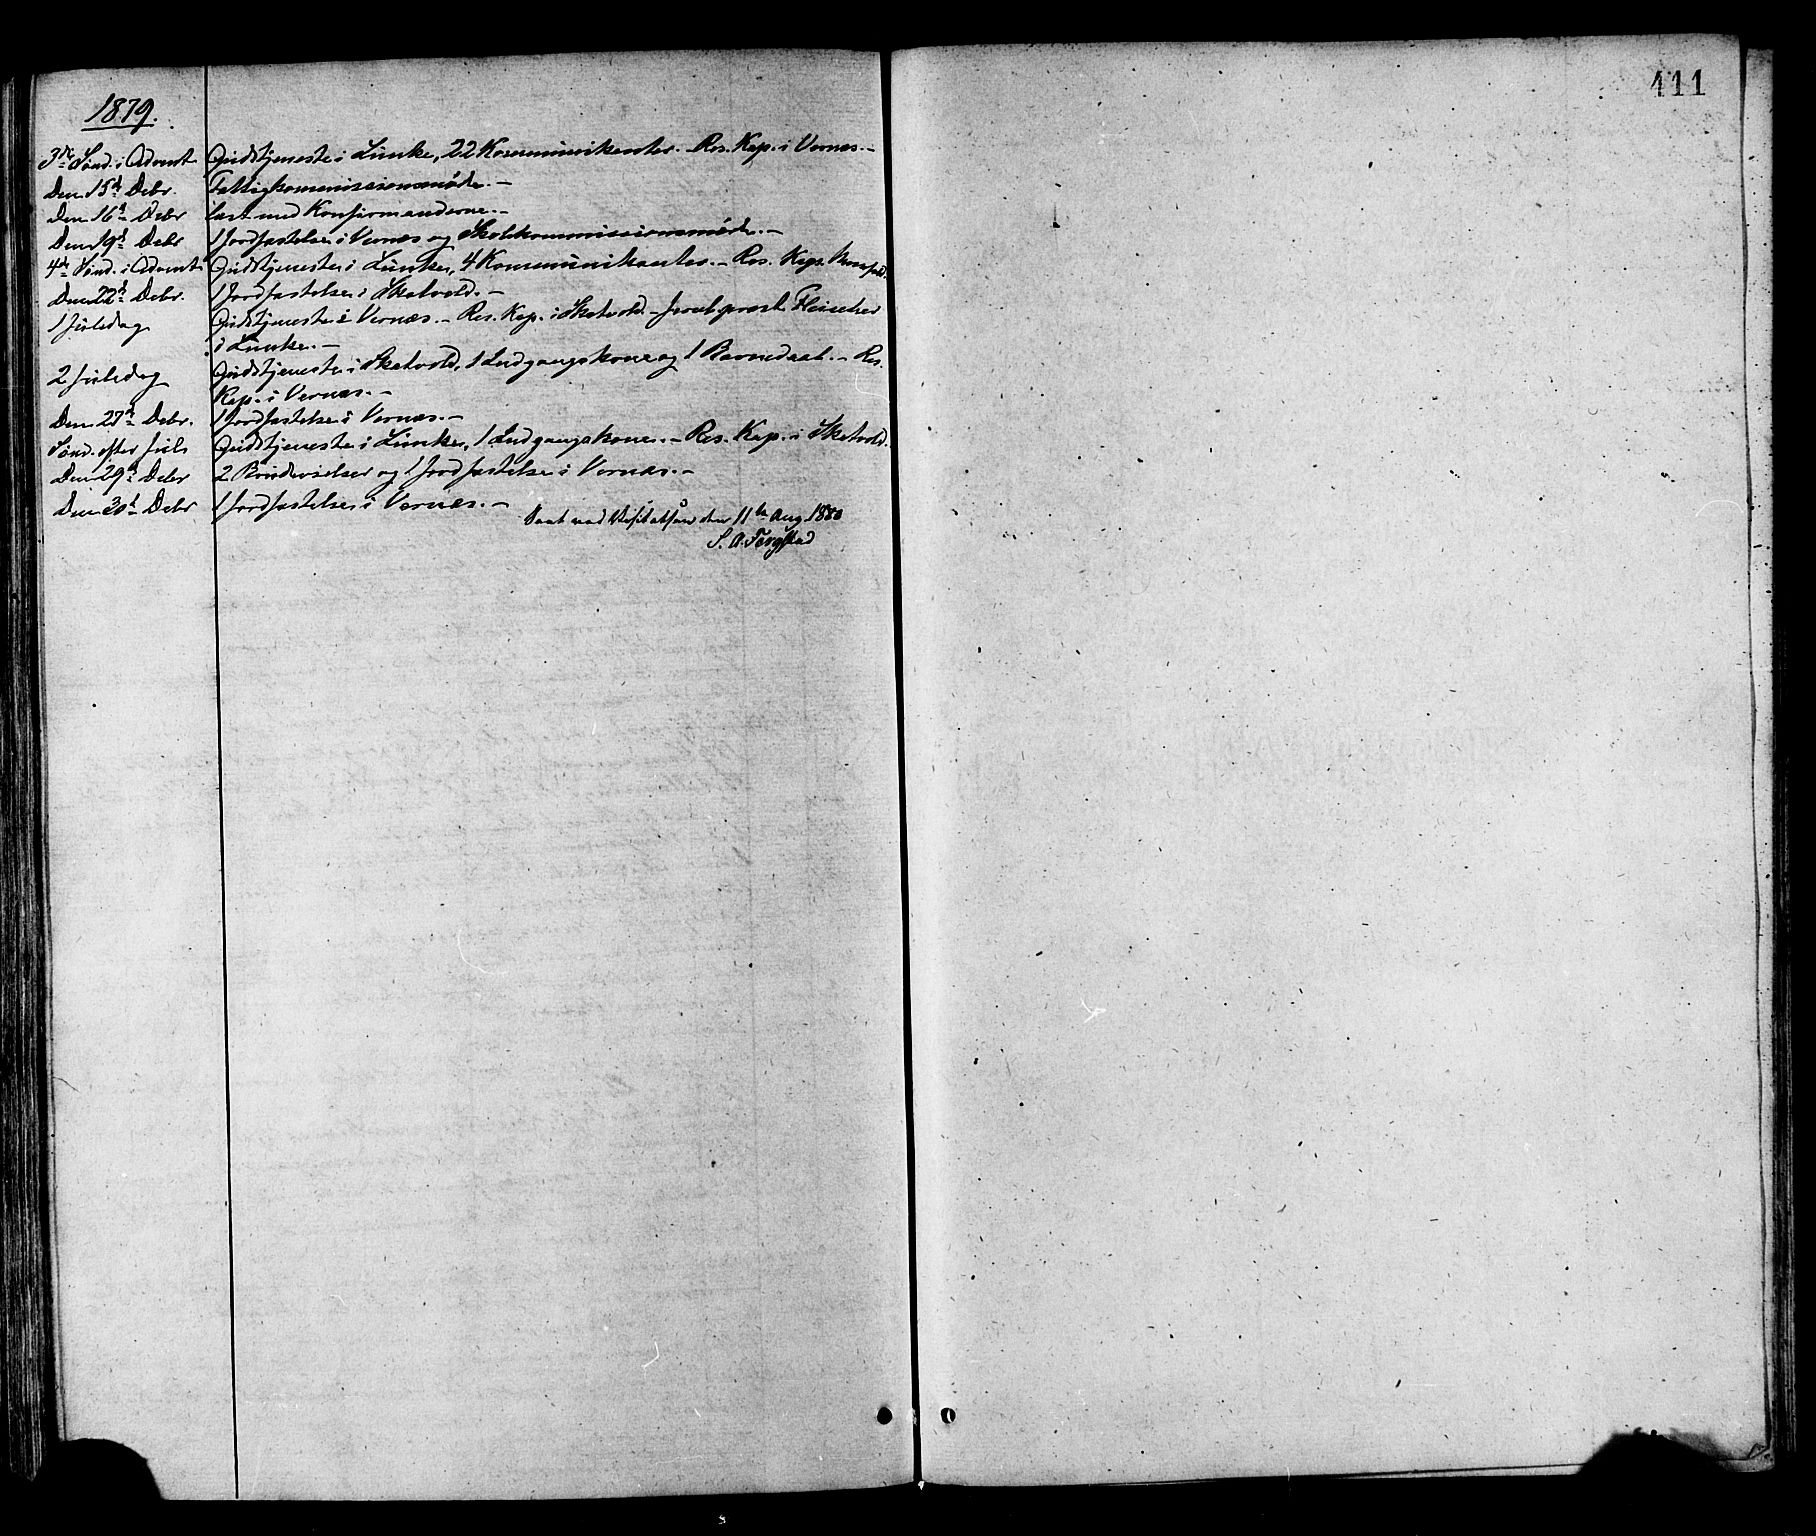 411
1879.
3die Sønd. i Advent Gudstjeneste i Lånke, 22 Kommunikanter. - Res. Kap. i Vernæs. -
Den 15de Debr. Fattigkommissionsmøde. -
Den 16de Debr læst med Konfirmanderne. -
Den 19de Debr 1 Jordfæstelse i Vernæs og Skolekommissionsmøde. -
4de Sønd. i Advent Gudstjeneste i Lånke, 4 Kommunikanter. - Res. Kap.
Den 22de Debr. 1 Jordfæstelse i Skatvold. -
1 Juledag Gudstjeneste i Vernæs. - Res. Kap. i Skatvold -
i Lånke. -
2 Juledag Gudstjeneste i Skatvold, 1 Indgangskone og 1 Barnedaab. - Res.
Kap. i Vernæs. -
Den 27de Debr. 1 Jordfæstelse i Vernæs. -
Sønd. efter Juul Gudstjeneste i Lånke, 1 Indgangskone. - Res. Kap. i Skatvold.
Den 29de Debr 2 Brudevielser og 1 Jordfæstelse i Vernæs. -
Den 30te Debr 1 Jordfæstelse i Vernæs. -
Seet ved Visitatsen den 11te Aug. 1880